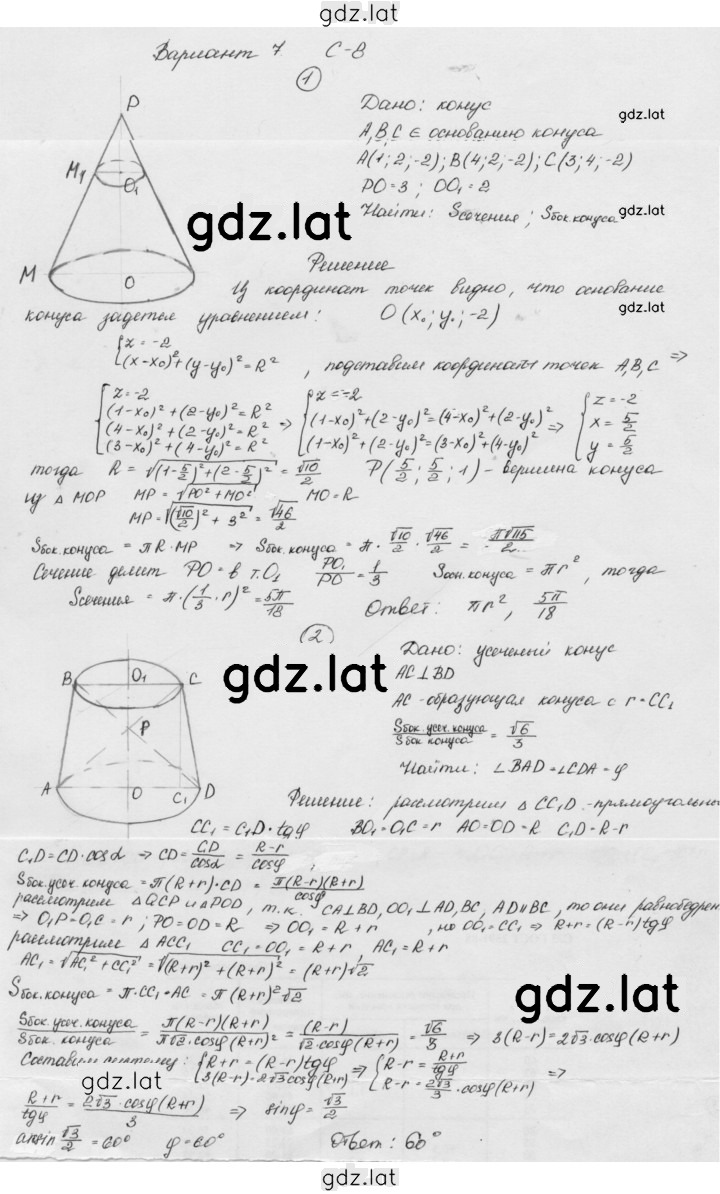 gdz.lat
Вариант 7 С-8
①
Дано: конус
A,B,C ∈ основанию конуса
A(1;2;-2); B(4;2;-2); C(3;4;-2)
PO=3; OO₁=2
Найти: Sсечения; Sбок.конуса
gdz.lat
gdz.lat
gdz.lat
P
M₁
O₁
M
O
Решение
Из координат точек видно, что основание
конуса задется уравнением: O(x₀; y₀; -2)
gdz.lat
{z=-2
(x-x₀)²+(y-y₀)²=R², подставим координаты точек A,B,C ⇒
{z=-2
(1-x₀)²+(2-y₀)²=R²
(4-x₀)²+(2-y₀)²=R²
(3-x₀)²+(4-y₀)²=R² ⇒
{z=-2
(1-x₀)²+(2-y₀)²=(4-x₀)²+(2-y₀)²
(1-x₀)²+(2-y₀)²=(3-x₀)²+(4-y₀)² ⇒
{z=-2
x=5/2
y=5/2
тогда R=√((1-5/2)²+(2-5/2)²)=√10/2 P(5/2; 5/2; 1) - вершина конуса
из △MOP MP=√(PO²+MO²) MO=R
MP=√((√10/2)²+3²)=√46/2
Sбок.конуса = πR·MP ⇒ Sбок.конуса = π·√10/2·√46/2 = π√115/2
Сечение делит PO в т.O₁ PO₁/PO=1/3 Sосн.конуса = πr², тогда
Sсечения = π·(1/3·r)²=5π/18 Ответ: πr², 5π/18
②
Дано: усеченый конус
AC⊥BD
AC-образующая конуса с r=CC₁
Sбок.усеч.конуса/Sбок конуса = √6/3
Найти: ∠BAD=∠CDA=φ
gdz.lat
B
O₁
C
P
A
O
C₁
D
Решение: рассмотрим △CC₁D-прямоугольный
CC₁=C₁D·tgφ BO₁=O₁C=r AO=OD=R C₁D=R-r
C₁D=CD·cosα ⇒ CD=CD/cosα=R-r/cosφ,
Sбок.усеч.конуса=π(R+r)·CD=π(R-r)(R+r)/cosφ
рассмотрим △O₁CP и △POD, т.к. CA⊥BD, OO₁⊥AD,BC, AD∥BC, то они равнобедрен
⇒ O₁P=O₁C=r; PO=OD=R ⇒ OO₁=R+r, но OO₁=CC₁ ⇒ R+r=(R-r)tgφ
рассмотрим △ACC₁ CC₁=OO₁=R+r, AC₁=R+r
AC₁=√(AC₁²+CC₁²)=√((R+r)²+(R+r)²)=(R+r)√2
Sбок.конуса=π·CC₁·AC=π(R+r)²√2
gdz.lat
Sбок.усеч.конуса/Sбок. конуса=π(R-r)(R+r)/π√2·cosφ(R+r)²=(R-r)/√2·cosφ(R+r)=√6/3 ⇒ 3(R-r)=2√3·cosφ(R+r)
Составим систему: {R+r=(R-r)tgφ
3(R-r)=2√3cosφ(R+r) ⇒ {R-r=R+r/tgφ
R-r=2√3/3·cosφ(R+r) ⇒
gdz.lat
R+r/tgφ=2√3·cosφ(R+r)/3 ⇒ sinφ=√3/2
arcsin√3/2=60° φ=60° Ответ: 60°
gdz.lat